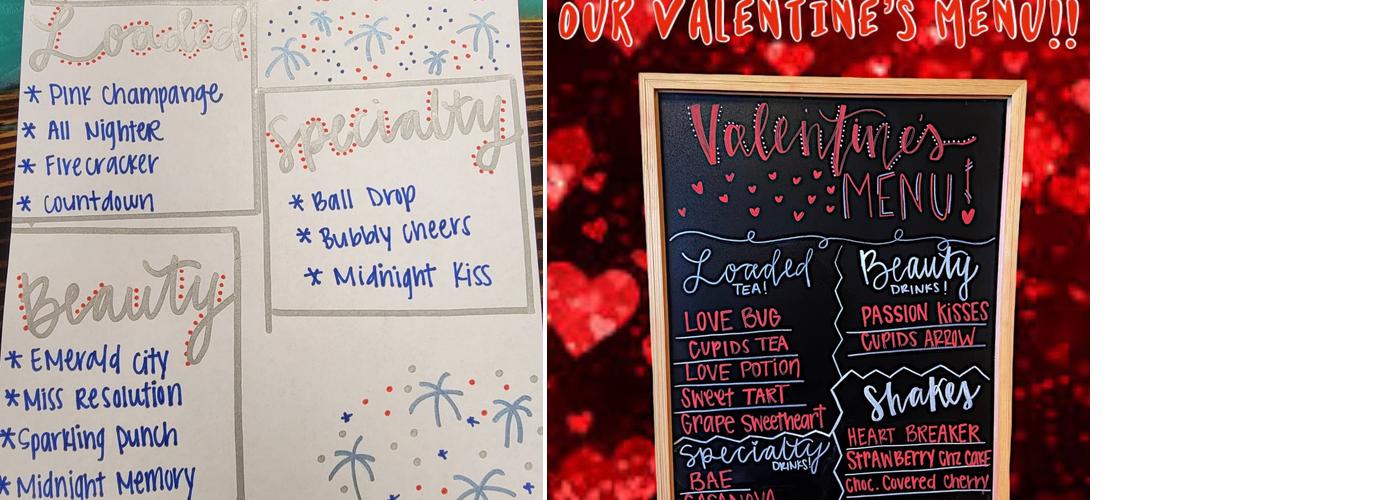 Loaded
* Pink Champange
* All Nighter
* Firecracker
* Countdown
Specialty
* Ball Drop
* Bubbly Cheers
* Midnight Kiss
Beauty
* Emerald City
* Miss Resolution
* Sparkling Punch
* Midnight Memory
OUR VALENTINE'S MENU!!
Valentine's
MENU!
Loaded
TEA!
LOVE BUG
CUPIDS TEA
LOVE POTION
Sweet TART
Grape Sweetheart
Specialty
DRINKS!
BAE
CASANOVA
Beauty
DRINKS!
PASSION KISSES
CUPIDS ARROW
Shakes
HEART BREAKER
STRAWBERRY CHZ CAKE
Choc. Covered Cherry